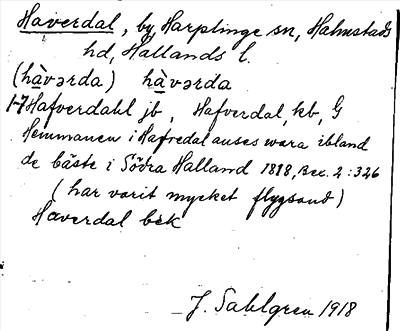 Haverdal, by, Harplinge sn, Halmstads
hd, Hallands l.
(hàvərda) hàvərda
1-7 Hafverdahl jb, Hafverdal, kb, G
Hemmanen i Hafredal anses wara ibland
de bäste i Södra Halland 1818, Bex. 2:326
(har varit mycket flygsand)
Haverdal bek
J. Sahlgren 1918